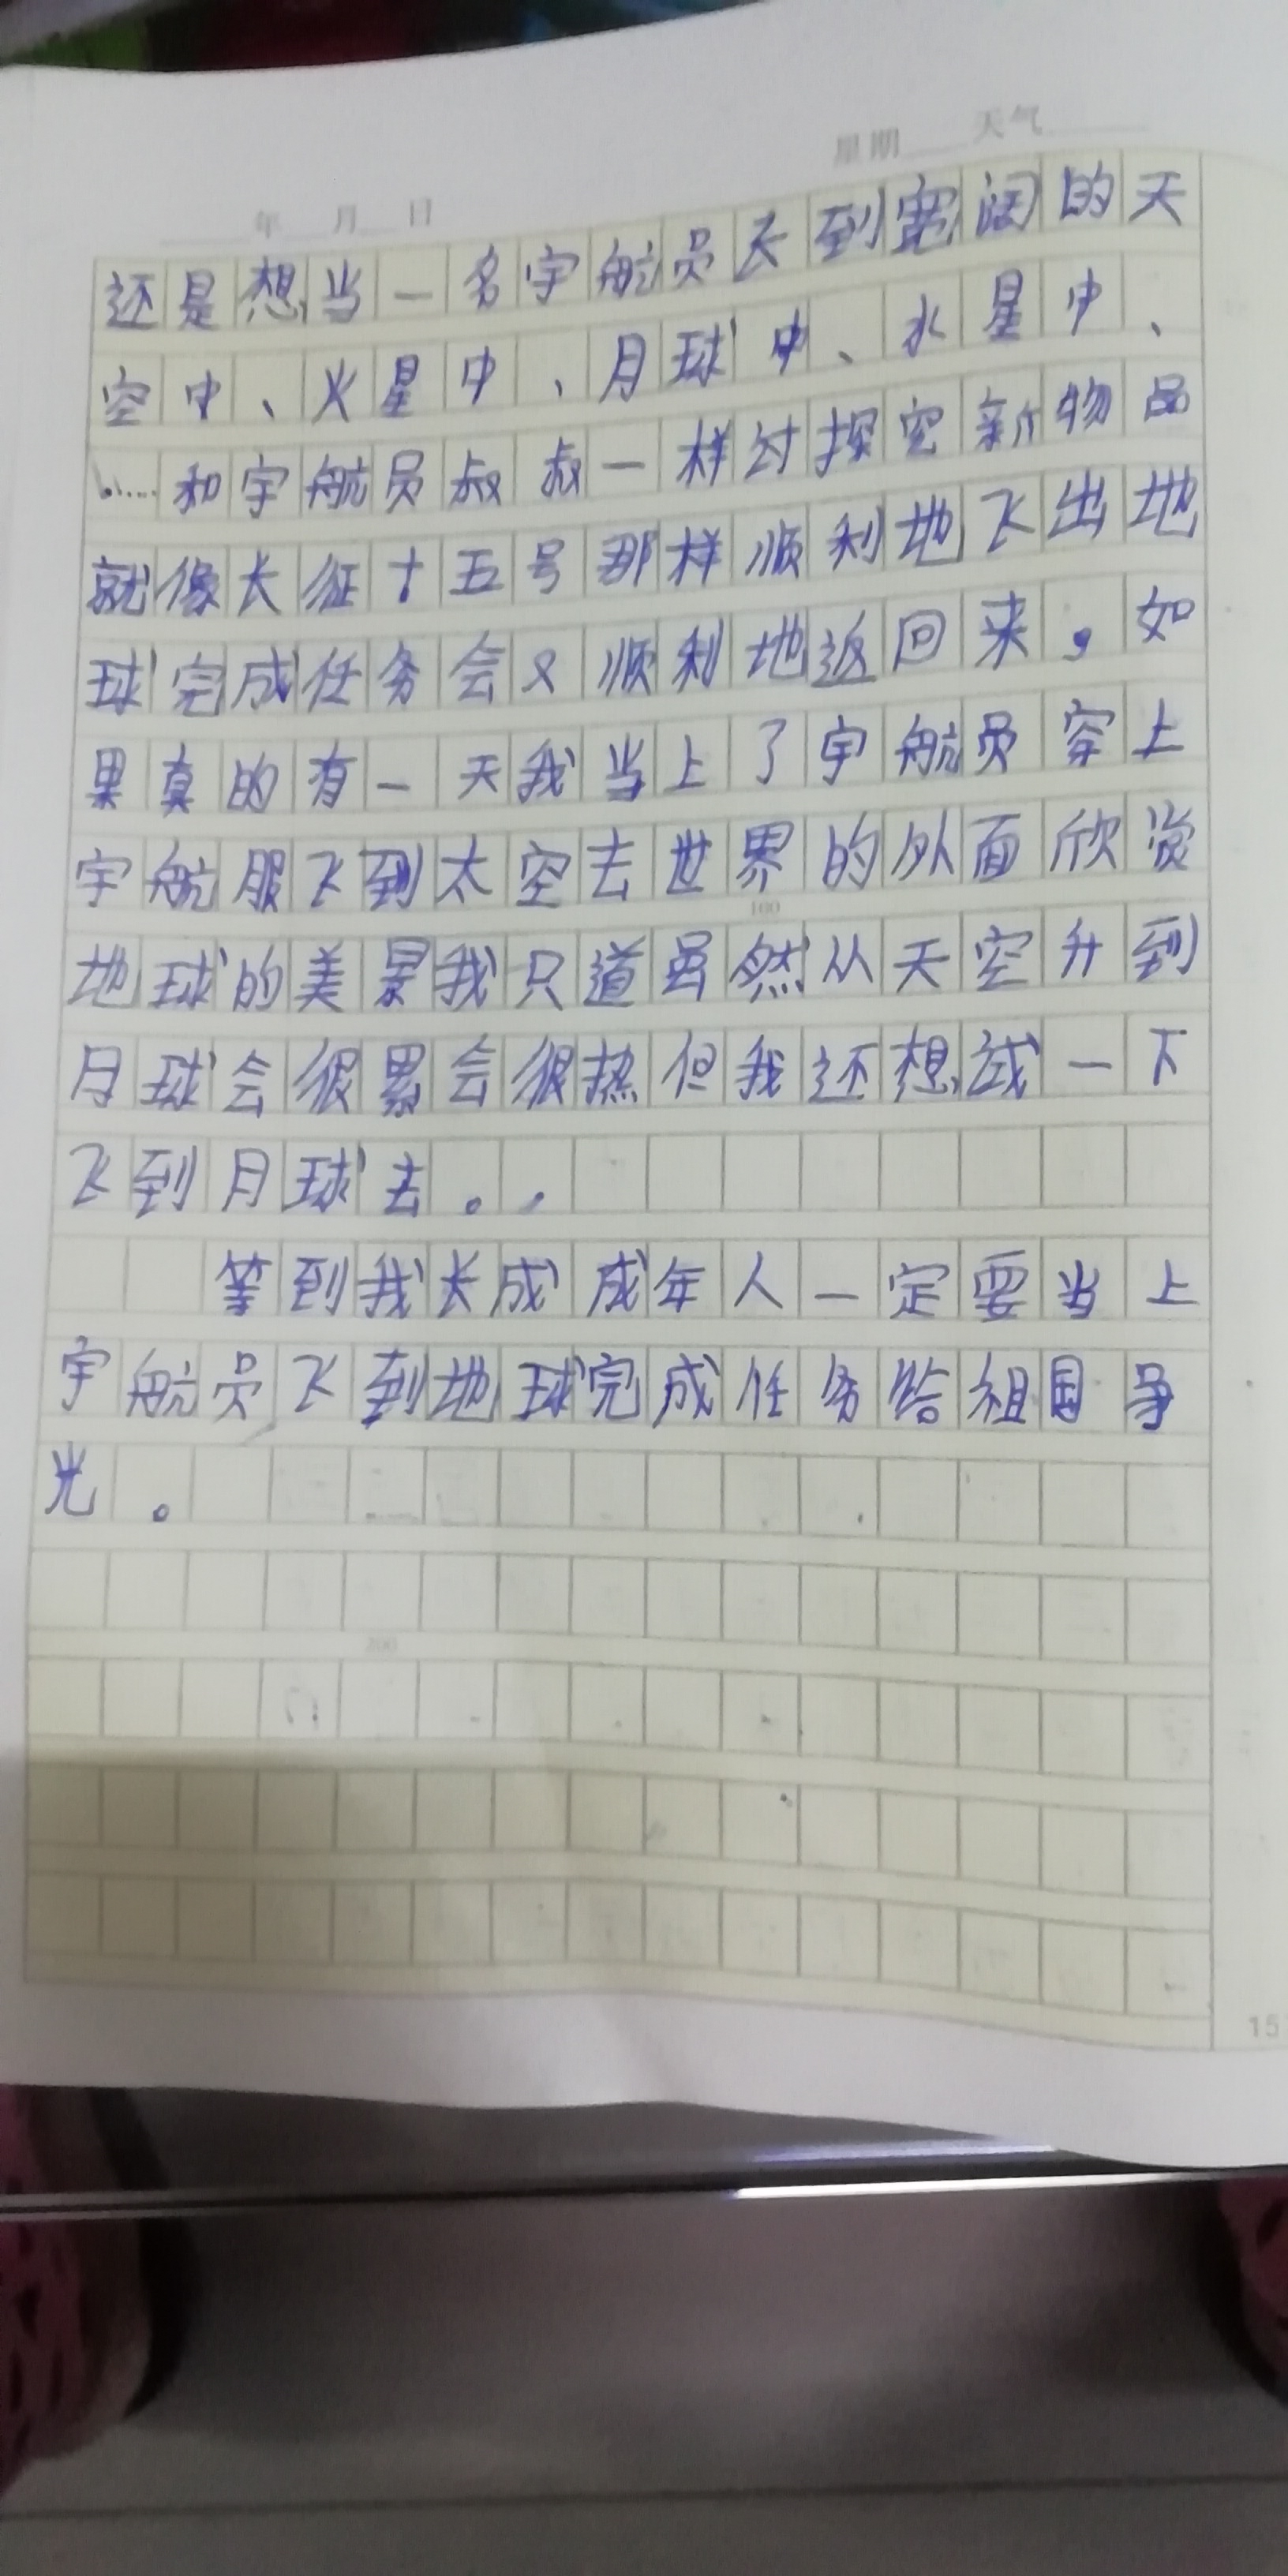 星期 天气
年 月 日
还是想当一名宇航员飞到宽阔的天
空中、火星中、月球中、水星中、
……和宇航员叔叔一样去探究新物品
就像长征十五号那样顺利地飞出地
球完成任务会又顺利地返回来。如
果真的有一天我当上了宇航员穿上
宇航服飞到太空去世界的外面欣赏
100
地球的美景我只道虽然从天空升到
月球会很累会很热但我还想试一下
飞到月球去。
等到我长成成年人一定要当上
宇航员飞到地球完成任务给祖国争
光。
15